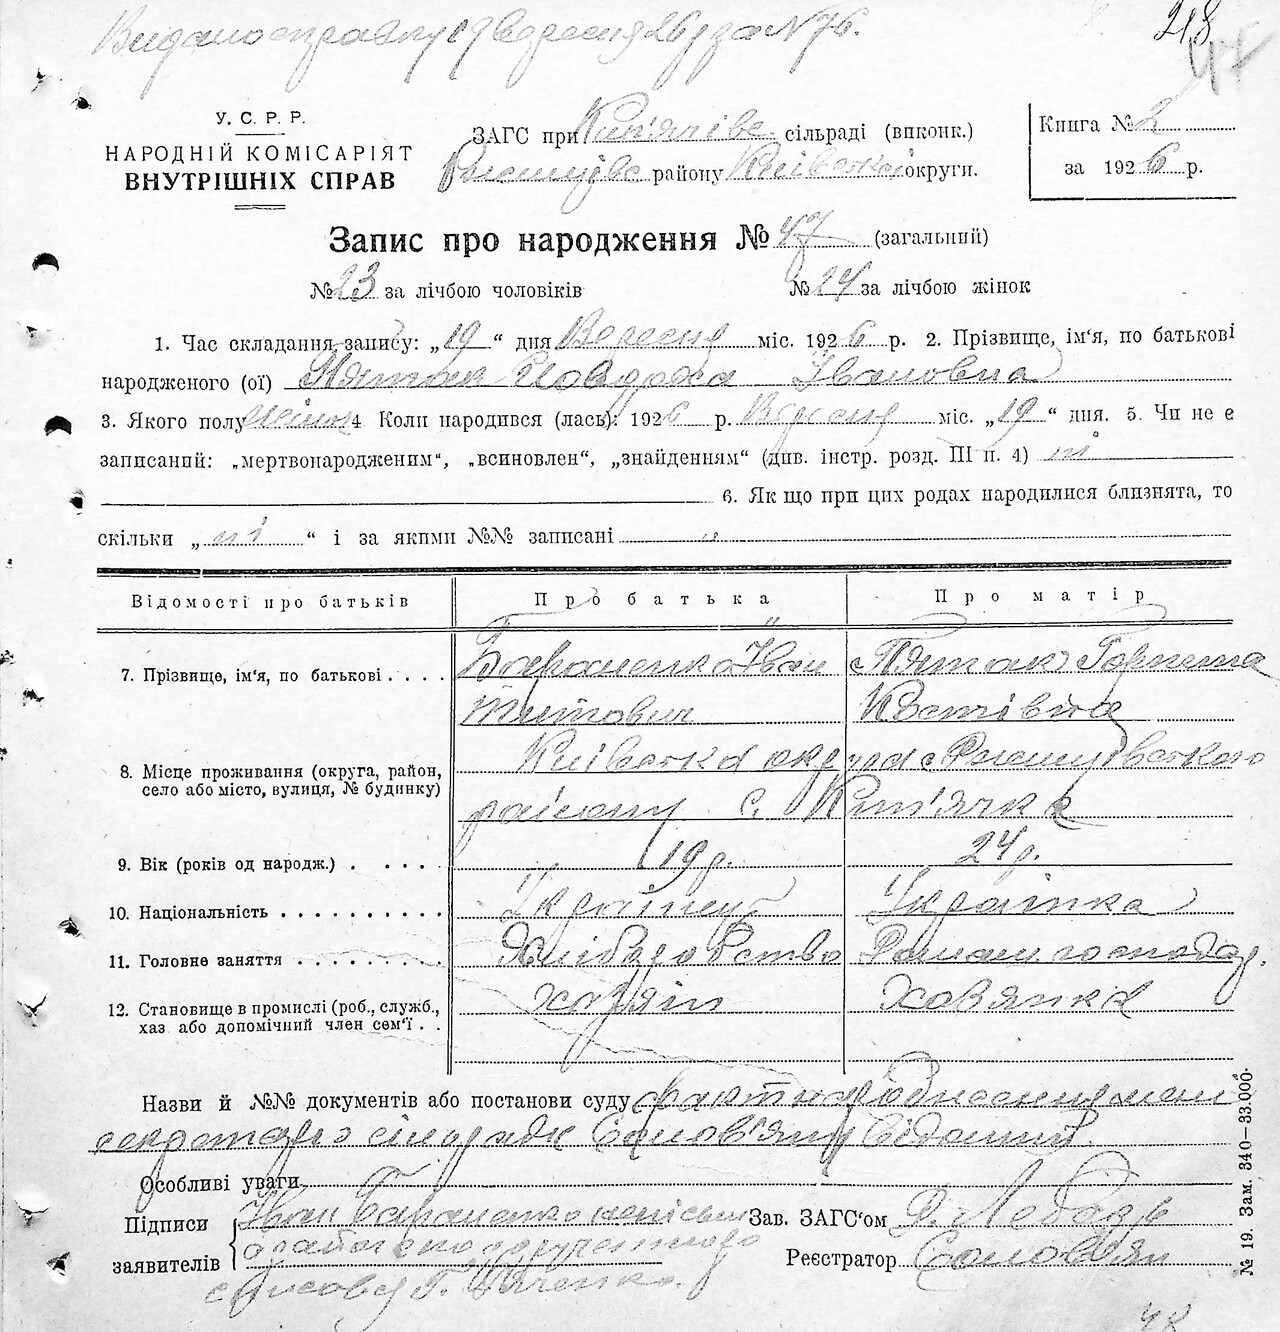 Видано справку 19 вересня 26 р за № 76.
218
47
У. С. Р. Р.
НАРОДНІЙ КОМІСАРІЯТ
ВНУТРІШНІХ СПРАВ
ЗАГС при Кип'ячівс. сільраді (виконк.)
Ржищівс району Київської округи.
Книга № 2
за 1926 р.
Запис про народження № 47 (загальний)
№ 23 за лічбою чоловіків № 24 за лічбою жінок
1. Час складання запису: „19“ дня Вересня міс. 1926 р. 2. Прізвище, ім'я, по батькові
народженого (ої) Пятак Явдоха Івановна
3. Якого полу жіноч 4. Коли народився (лась): 1926 р. Вересня міс. „19“ дня. 5. Чи не є
записаний: „мертвонародженим“, „всиновлен“, „знайденням“ (див. інстр. розд. III п. 4) ні
6. Як що при цих родах народилися близнята, то
скільки „ні“ і за якими №№ записані „
Відомості про батьків Про батька Про матір
7. Прізвище, ім'я, по батькові . . . . Бараненко Іван Пятак Горпина
Титович Костівна
8. Місце проживання (округа, район, село або місто, вулиця, № будинку) Київська округа Ржищівського
району с. Кип'ячка
9. Вік (років од народж.) . . . . . 19 р. 24 р.
10. Національність . . . . . . . . . . Українець Українка
11. Головне заняття . . . . . . . . . Хліборобство Домаш господар.
12. Становище в промислі (роб., служб., хаз або допомічний член сем'ї . . хазяїн хазяйка
Назви й №№ документів або постанови суду факт народження мені
секретарю сільради Соловʼяну відомий
Особливі уваги
Підписи заявителів Іван Бараненко неписьмен
а за його
Зав. ЗАГС'ом
Реєстратор Соловян
№ 19. Зам. 340—33.000.